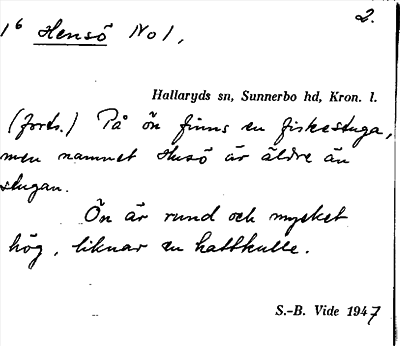 2.
16 Hensö No 1,
Hallaryds sn, Sunnerbo hd, Kron. l.
(forts.) På ön finns en fiskestuga,
men namnet Husö är äldre än
stugan.
Ön är rund och mycket
hög, liknar en hattkulle.
S.-B. Vide 1947